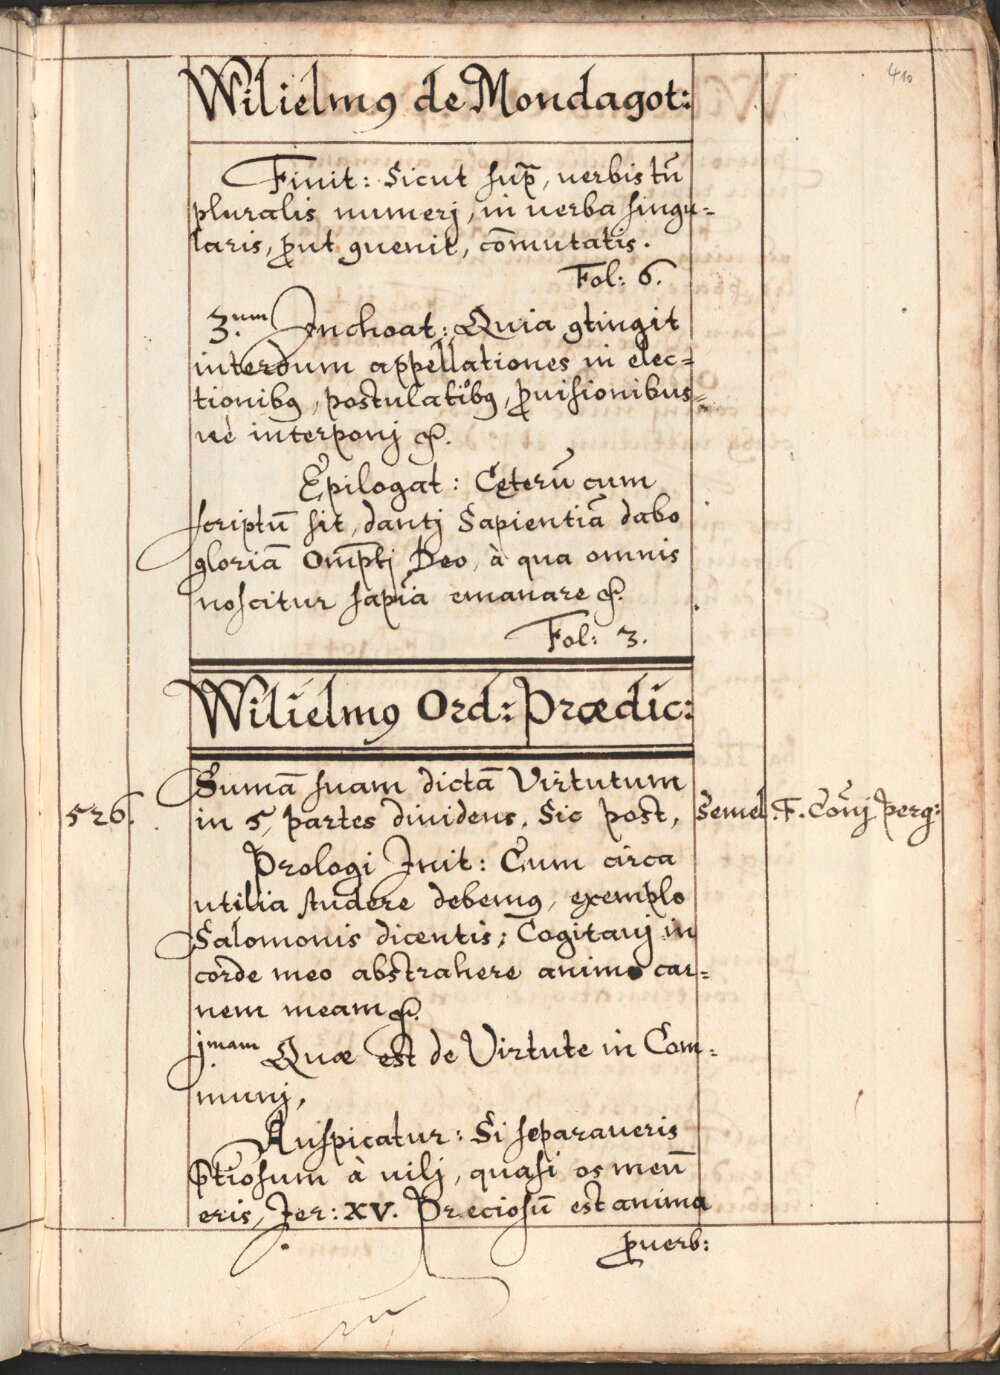 410
Wilielmꝰ de Mondagot:
Finit: Sicut sup̄, uerbis tū
pluralis numerj, in uerba singu=
laris, ꝓut ꝯuenit, cōmutatis.
Fol: 6.
3.um Inchoat: Quia ꝯtingit
interdum appellationes in elec=
tionibꝰ, postulatiōbꝰ, ꝓuisionibus=
uè interponj &.
Epilogat: Cęterū cum
scriptū sit, dantj Sapientiā dabo
gloriā Omp̄tj Deo, à qua omnis
noscitur sapīa emanare &.
Fol: 3.
Wilielmꝰ Ord: Prædic:
Sumā suam dictā Virtutum
526. in 5, partes diuidens. Sic post, Semel. F. Cōnj perg:
Prologi Init: Cum circa
utilia studere debemꝰ, exemplo
Salomonis dicentis; Cogitauj in
corde meo abstrahere animo car=
nem meam &.
j.mam Quæ est de Virtute in Com=
munj,
Auspicatur: Si separaueris
p̄tiosum à uilj, quasi os meū
eris, Jer: XV. Preciosū est anima
ꝓuerb: